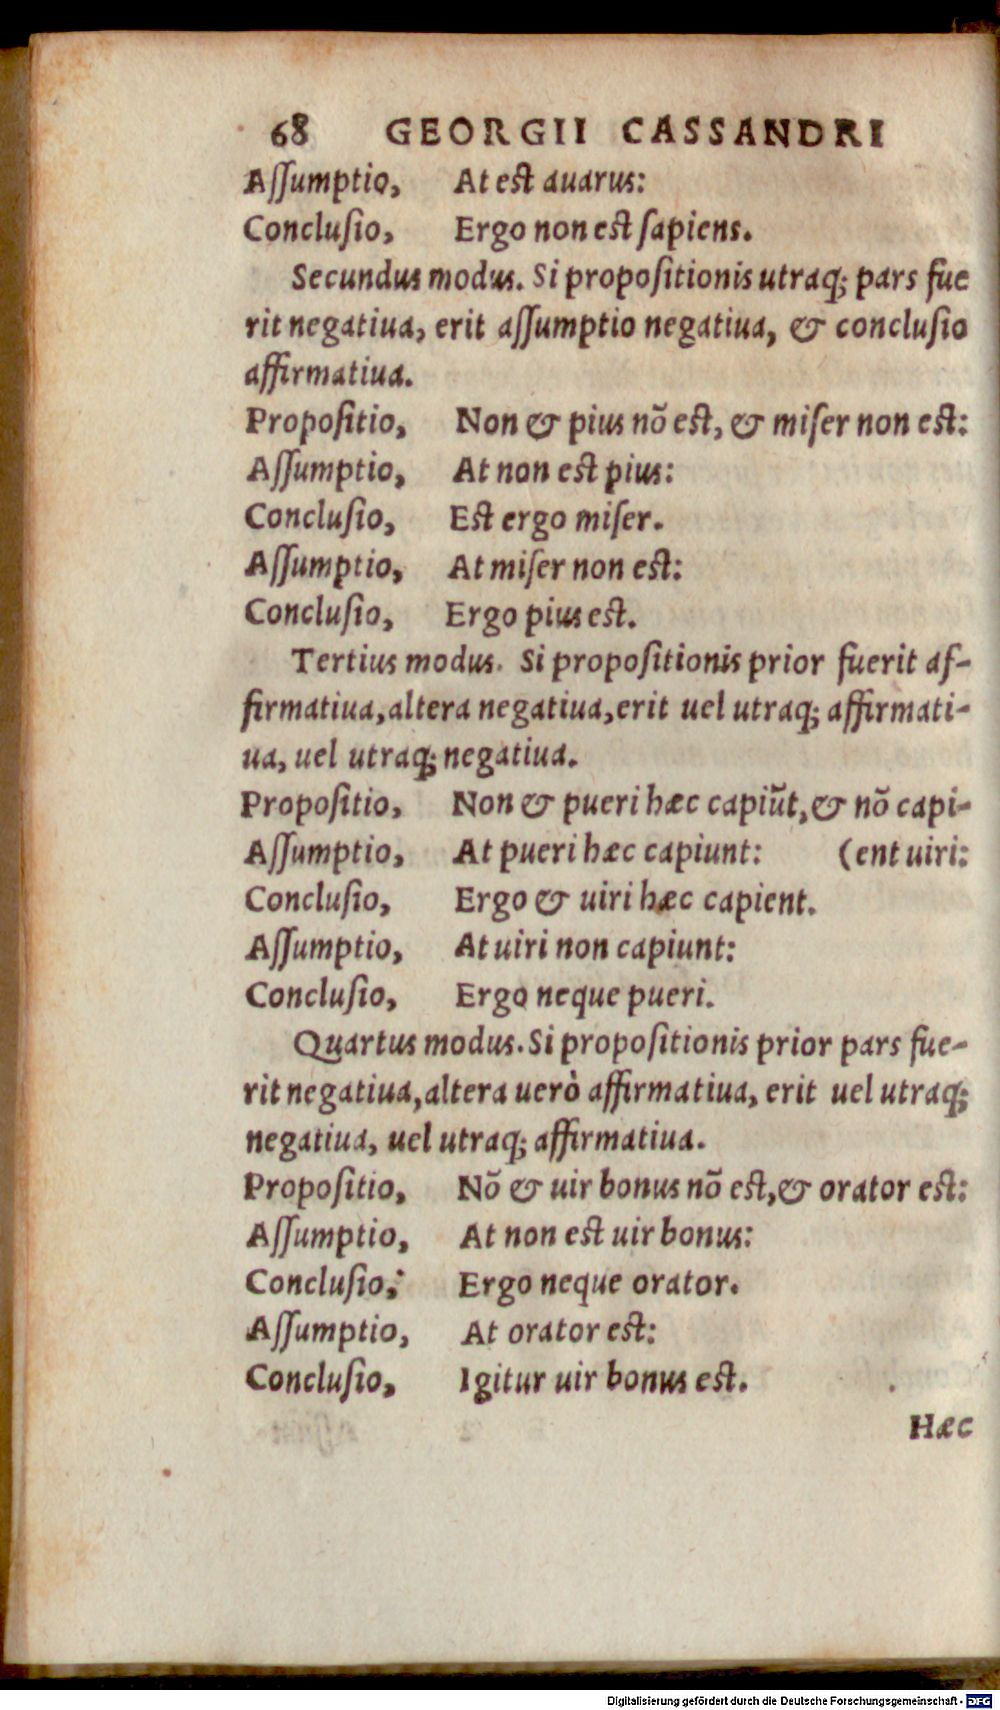 68 GEORGII CASSANDRI
Aſſumptio, At est auarus:
Concluſio, Ergo non est ſapiens.
Secundus modus. Si propoſitionis utraq; pars fue
rit negatiua, erit aſſumptio negatiua, & concluſio
affirmatiua.
Propoſitio, Non & pius nō est, & miſer non est:
Aſſumptio, At non est pius:
Concluſio, Est ergo miſer.
Aſſumptio, At miſer non est:
Concluſio, Ergo pius est.
Tertius modus. Si propoſitionis prior fuerit af-
firmatiua, altera negatiua, erit uel utraq; affirmati-
ua, uel utraq; negatiua.
Propoſitio, Non & pueri hæc capiūt, & nō capi-
Aſſumptio, At pueri hæc capiunt: (ent uiri:
Concluſio, Ergo & uiri hæc capient.
Aſſumptio, At uiri non capiunt:
Concluſio, Ergo neque pueri.
Quartus modus. Si propoſitionis prior pars fue-
rit negatiua, altera uerò affirmatiua, erit uel utraq;
negatiua, uel utraq; affirmatiua.
Propoſitio, Nō & uir bonus nō est, & orator est:
Aſſumptio, At non est uir bonus:
Concluſio, Ergo neque orator.
Aſſumptio, At orator est:
Concluſio, Igitur uir bonus est.
Hæc
Digitalisierung gefördert durch die Deutsche Forschungsgemeinschaft - DFG